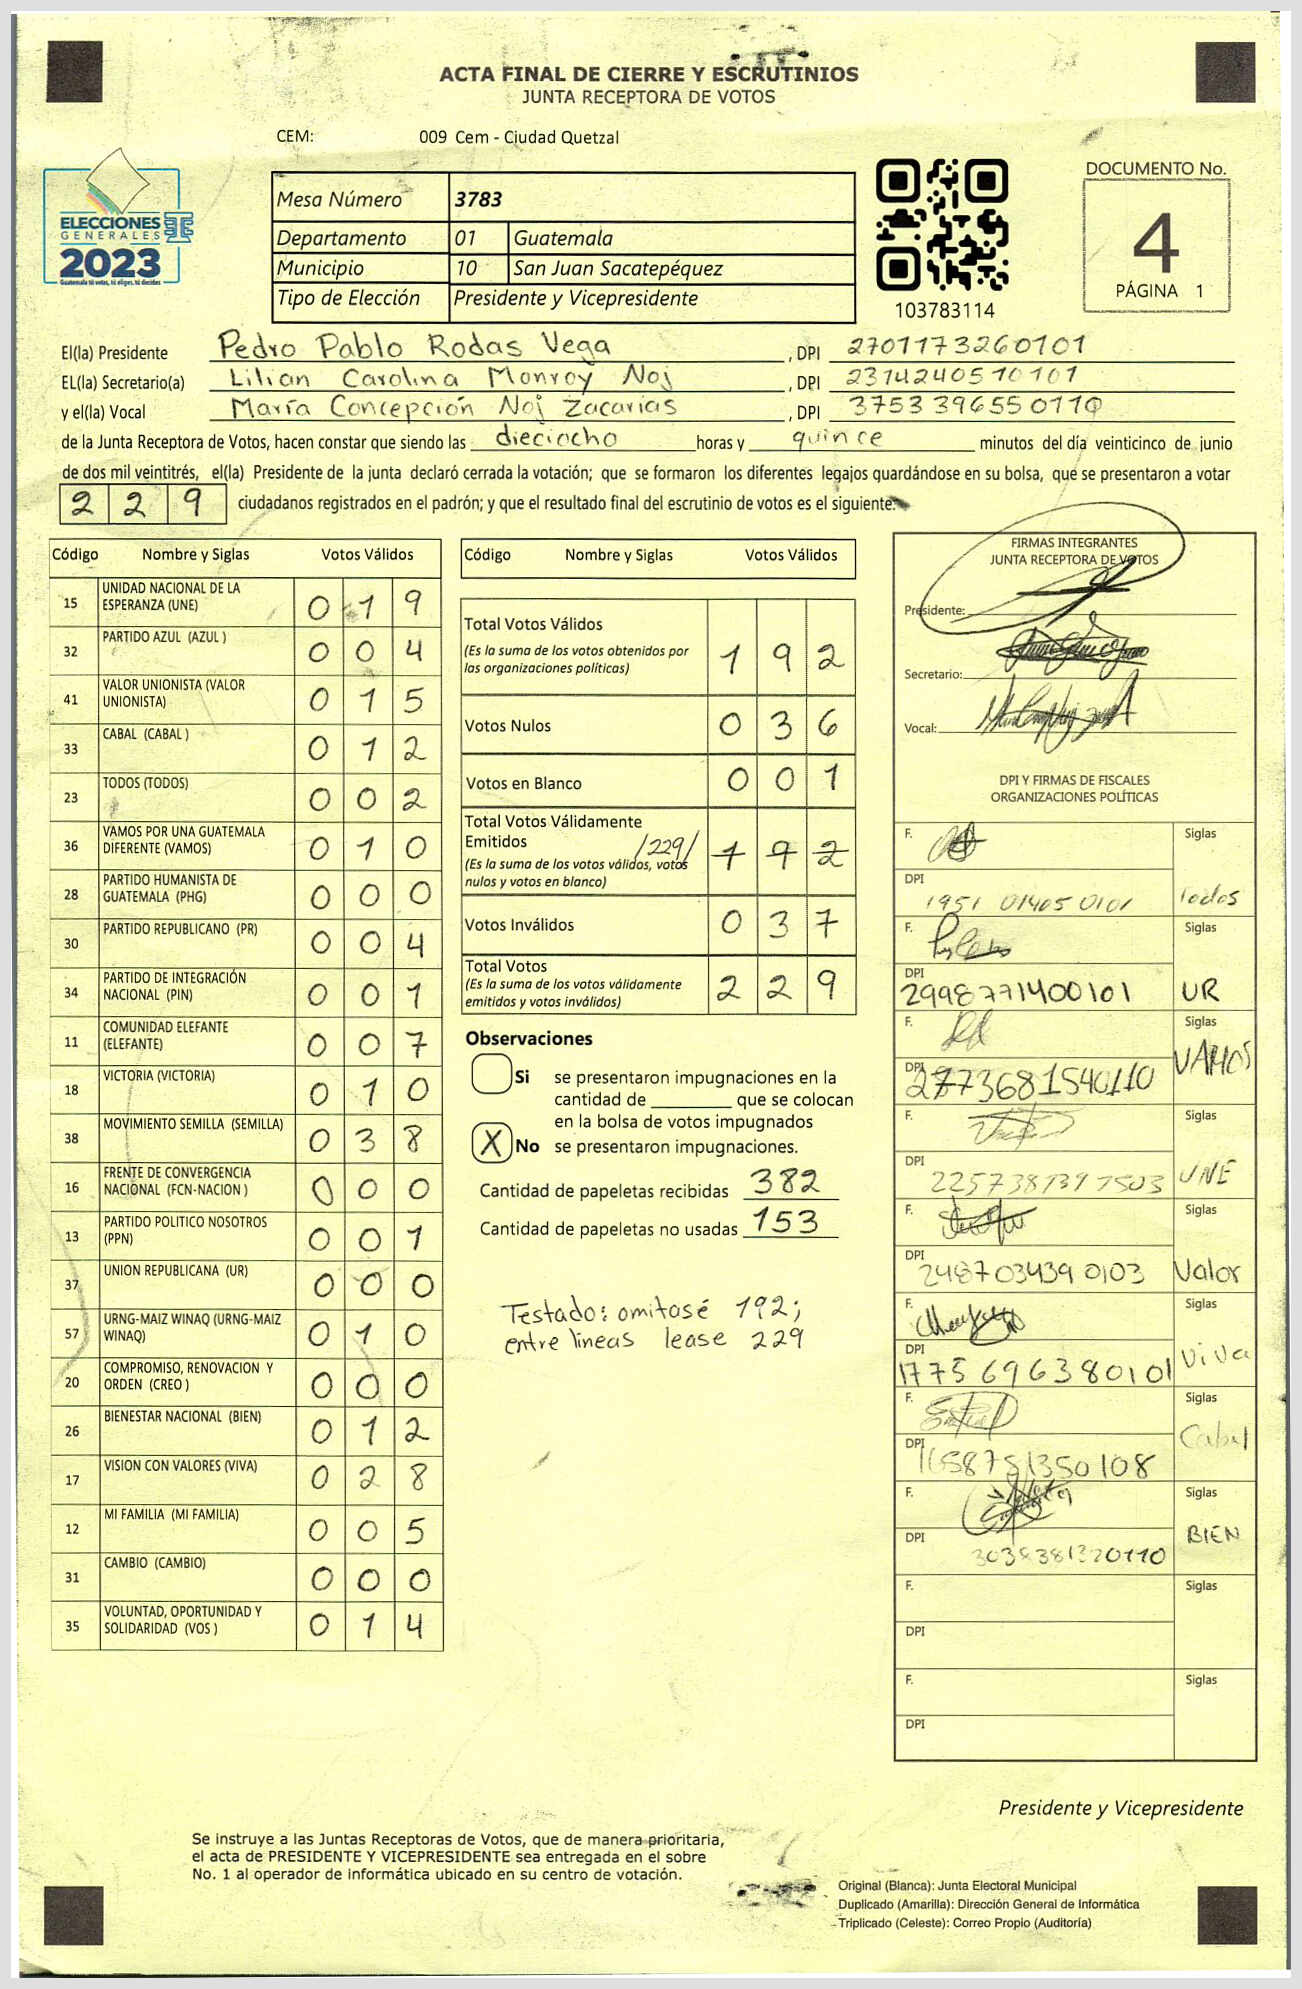 ACTA FINAL DE CIERRE Y ESCRUTINIOS
JUNTA RECEPTORA DE VOTOS
CEM: 009 Cem - Ciudad Quetzal
ELECCIONES
GENERALES
2023
Guatemala tú votas, tú eliges, tú decides
Mesa Número 3783
Departamento 01 Guatemala
Municipio 10 San Juan Sacatepéquez
Tipo de Elección Presidente y Vicepresidente
103783114
DOCUMENTO No.
4
PÁGINA 1
El(la) Presidente Pedro Pablo Rodas Vega , DPI 2701173260101
EL(la) Secretario(a) Lilian Carolina Monroy Noj , DPI 2314240510101
y el(la) Vocal María Concepción Noj Zacarias , DPI 3753396550110
de la Junta Receptora de Votos, hacen constar que siendo las dieciocho horas y quince minutos del día veinticinco de junio
de dos mil veintitrés, el(la) Presidente de la junta declaró cerrada la votación; que se formaron los diferentes legajos guardándose en su bolsa, que se presentaron a votar
2 2 9 ciudadanos registrados en el padrón; y que el resultado final del escrutinio de votos es el siguiente:
Código Nombre y Siglas Votos Válidos
15 UNIDAD NACIONAL DE LA
ESPERANZA (UNE) 0 1 9
32 PARTIDO AZUL (AZUL ) 0 0 4
41 VALOR UNIONISTA (VALOR
UNIONISTA) 0 1 5
33 CABAL (CABAL ) 0 1 2
23 TODOS (TODOS) 0 0 2
36 VAMOS POR UNA GUATEMALA
DIFERENTE (VAMOS) 0 1 0
28 PARTIDO HUMANISTA DE
GUATEMALA (PHG) 0 0 0
30 PARTIDO REPUBLICANO (PR) 0 0 4
34 PARTIDO DE INTEGRACIÓN
NACIONAL (PIN) 0 0 1
11 COMUNIDAD ELEFANTE
(ELEFANTE) 0 0 7
18 VICTORIA (VICTORIA) 0 1 0
38 MOVIMIENTO SEMILLA (SEMILLA) 0 3 8
16 FRENTE DE CONVERGENCIA
NACIONAL (FCN-NACION ) 0 0 0
13 PARTIDO POLITICO NOSOTROS
(PPN) 0 0 1
37 UNION REPUBLICANA (UR) 0 0 0
57 URNG-MAIZ WINAQ (URNG-MAIZ
WINAQ) 0 1 0
20 COMPROMISO, RENOVACION Y
ORDEN (CREO ) 0 0 0
26 BIENESTAR NACIONAL (BIEN) 0 1 2
17 VISION CON VALORES (VIVA) 0 2 8
12 MI FAMILIA (MI FAMILIA) 0 0 5
31 CAMBIO (CAMBIO) 0 0 0
35 VOLUNTAD, OPORTUNIDAD Y
SOLIDARIDAD (VOS ) 0 1 4
Código Nombre y Siglas Votos Válidos
Total Votos Válidos
(Es la suma de los votos obtenidos por
las organizaciones políticas) 1 9 2
Votos Nulos 0 3 6
Votos en Blanco 0 0 1
Total Votos Válidamente
Emitidos /229/ 1 9 2
(Es la suma de los votos válidos, votos
nulos y votos en blanco)
Votos Inválidos 0 3 7
Total Votos
(Es la suma de los votos válidamente
emitidos y votos inválidos) 2 2 9
Observaciones
Si se presentaron impugnaciones en la
cantidad de ________ que se colocan
en la bolsa de votos impugnados
X No se presentaron impugnaciones.
Cantidad de papeletas recibidas 382
Cantidad de papeletas no usadas 153
Testado: omitosé 192;
entre lineas lease 229
FIRMAS INTEGRANTES
JUNTA RECEPTORA DE VOTOS
Presidente:
Secretario:
Vocal:
DPI Y FIRMAS DE FISCALES
ORGANIZACIONES POLÍTICAS
F. Siglas
DPI 1951 01405 0101 Todos
F. Siglas
DPI 2998771400101 UR
F. Siglas
DPI VAMOS
F. Siglas
DPI UNE
F. Siglas
DPI 248703439 0103 Valor
F. Siglas
DPI 1775 69638 0101 ViVa
F. Siglas
DPI Cabal
F. Siglas
DPI BIEN
F. Siglas
DPI
F. Siglas
DPI
Presidente y Vicepresidente
Se instruye a las Juntas Receptoras de Votos, que de manera prioritaria,
el acta de PRESIDENTE Y VICEPRESIDENTE sea entregada en el sobre
No. 1 al operador de informática ubicado en su centro de votación.
Original (Blanca): Junta Electoral Municipal
Duplicado (Amarilla): Dirección General de Informática
Triplicado (Celeste): Correo Propio (Auditoría)